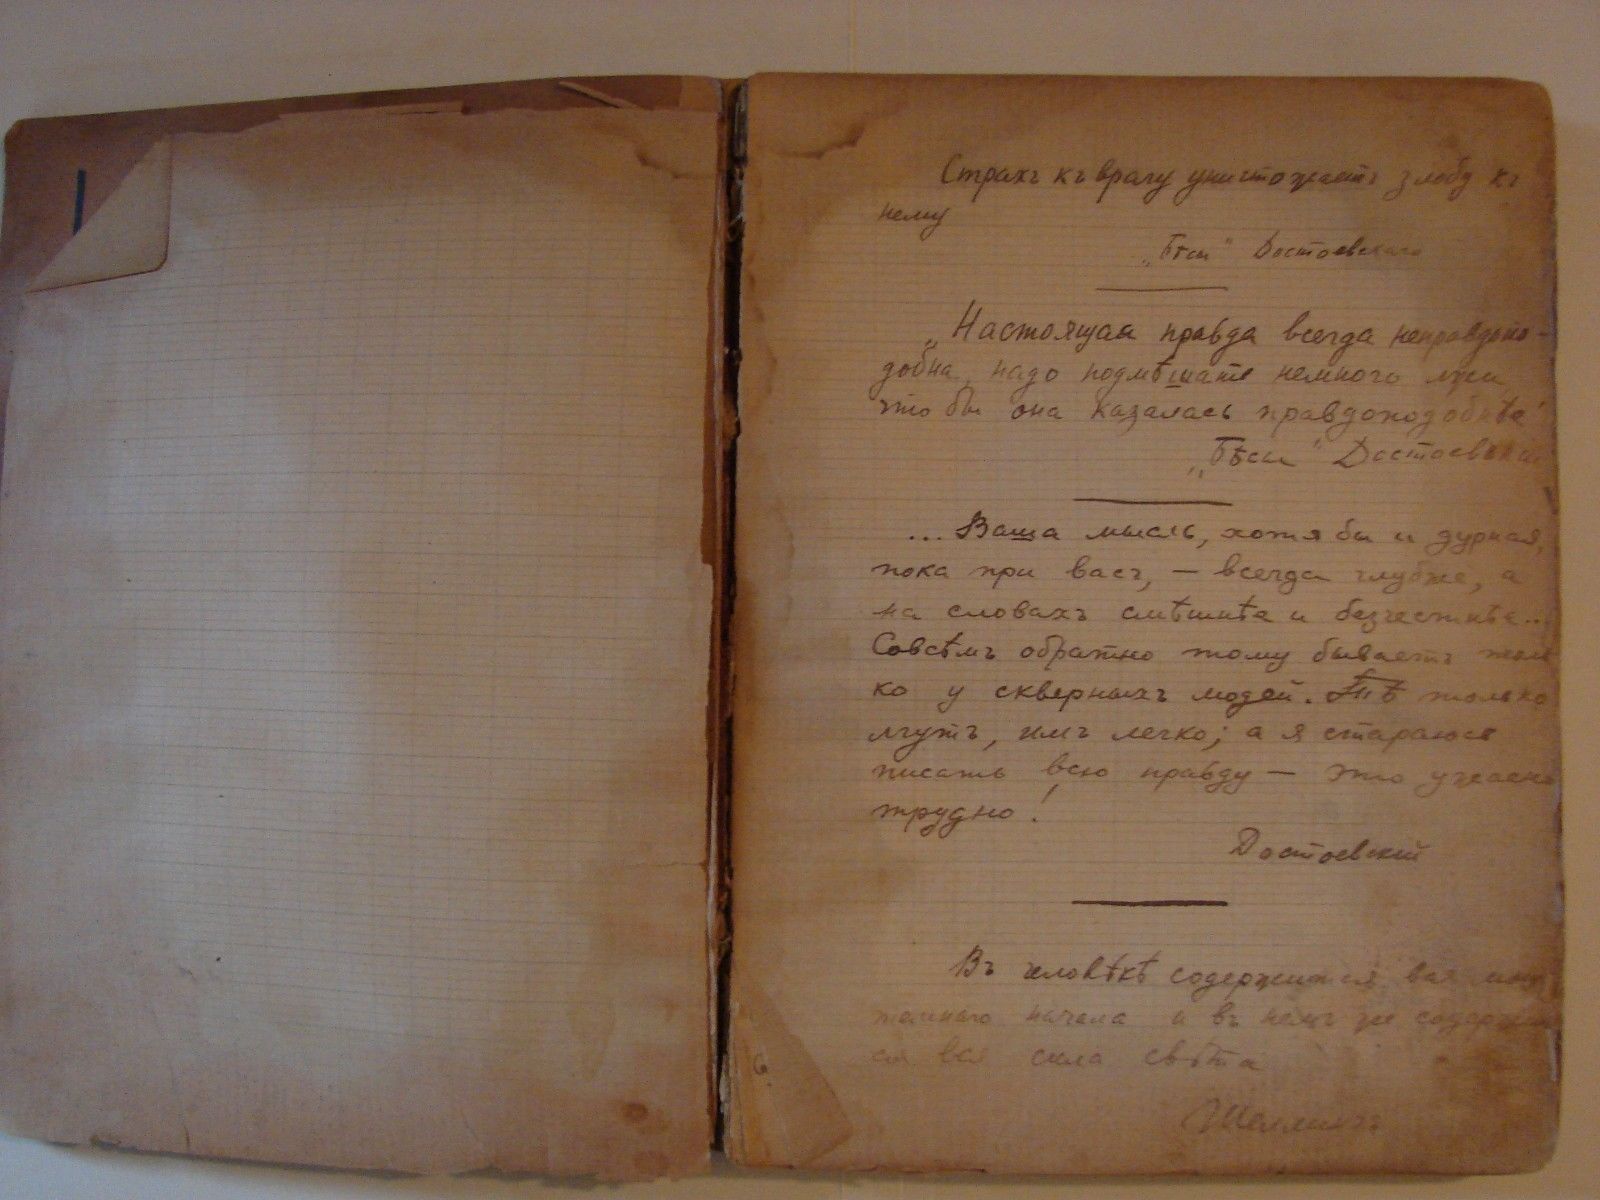 Страхъ къ врагу уничтожаетъ злобу къ
нему
„Бѣсы" Достоевскаго
„Настоящая правда всегда неправдопо-
добна, надо подмѣшать немного лжи
что бы она казалась правдоподобнѣе"
„Бѣсы" Достоевскій
... Ваша мысль, хотя бы и дурная,
пока при васъ, — всегда глубже, а
на словахъ смѣшнѣе и безчестнѣе...
Совсѣмъ обратно тому бываетъ толь
ко у скверныхъ людей. Тѣ только
лгутъ, имъ легко; а я стараюсь
писать всю правду — это ужасно
трудно!
Достоевскій
Въ человѣкѣ содержится вся мощь
темнаго начала и въ немъ же содержит
ся вся сила свѣта
Шеллингъ